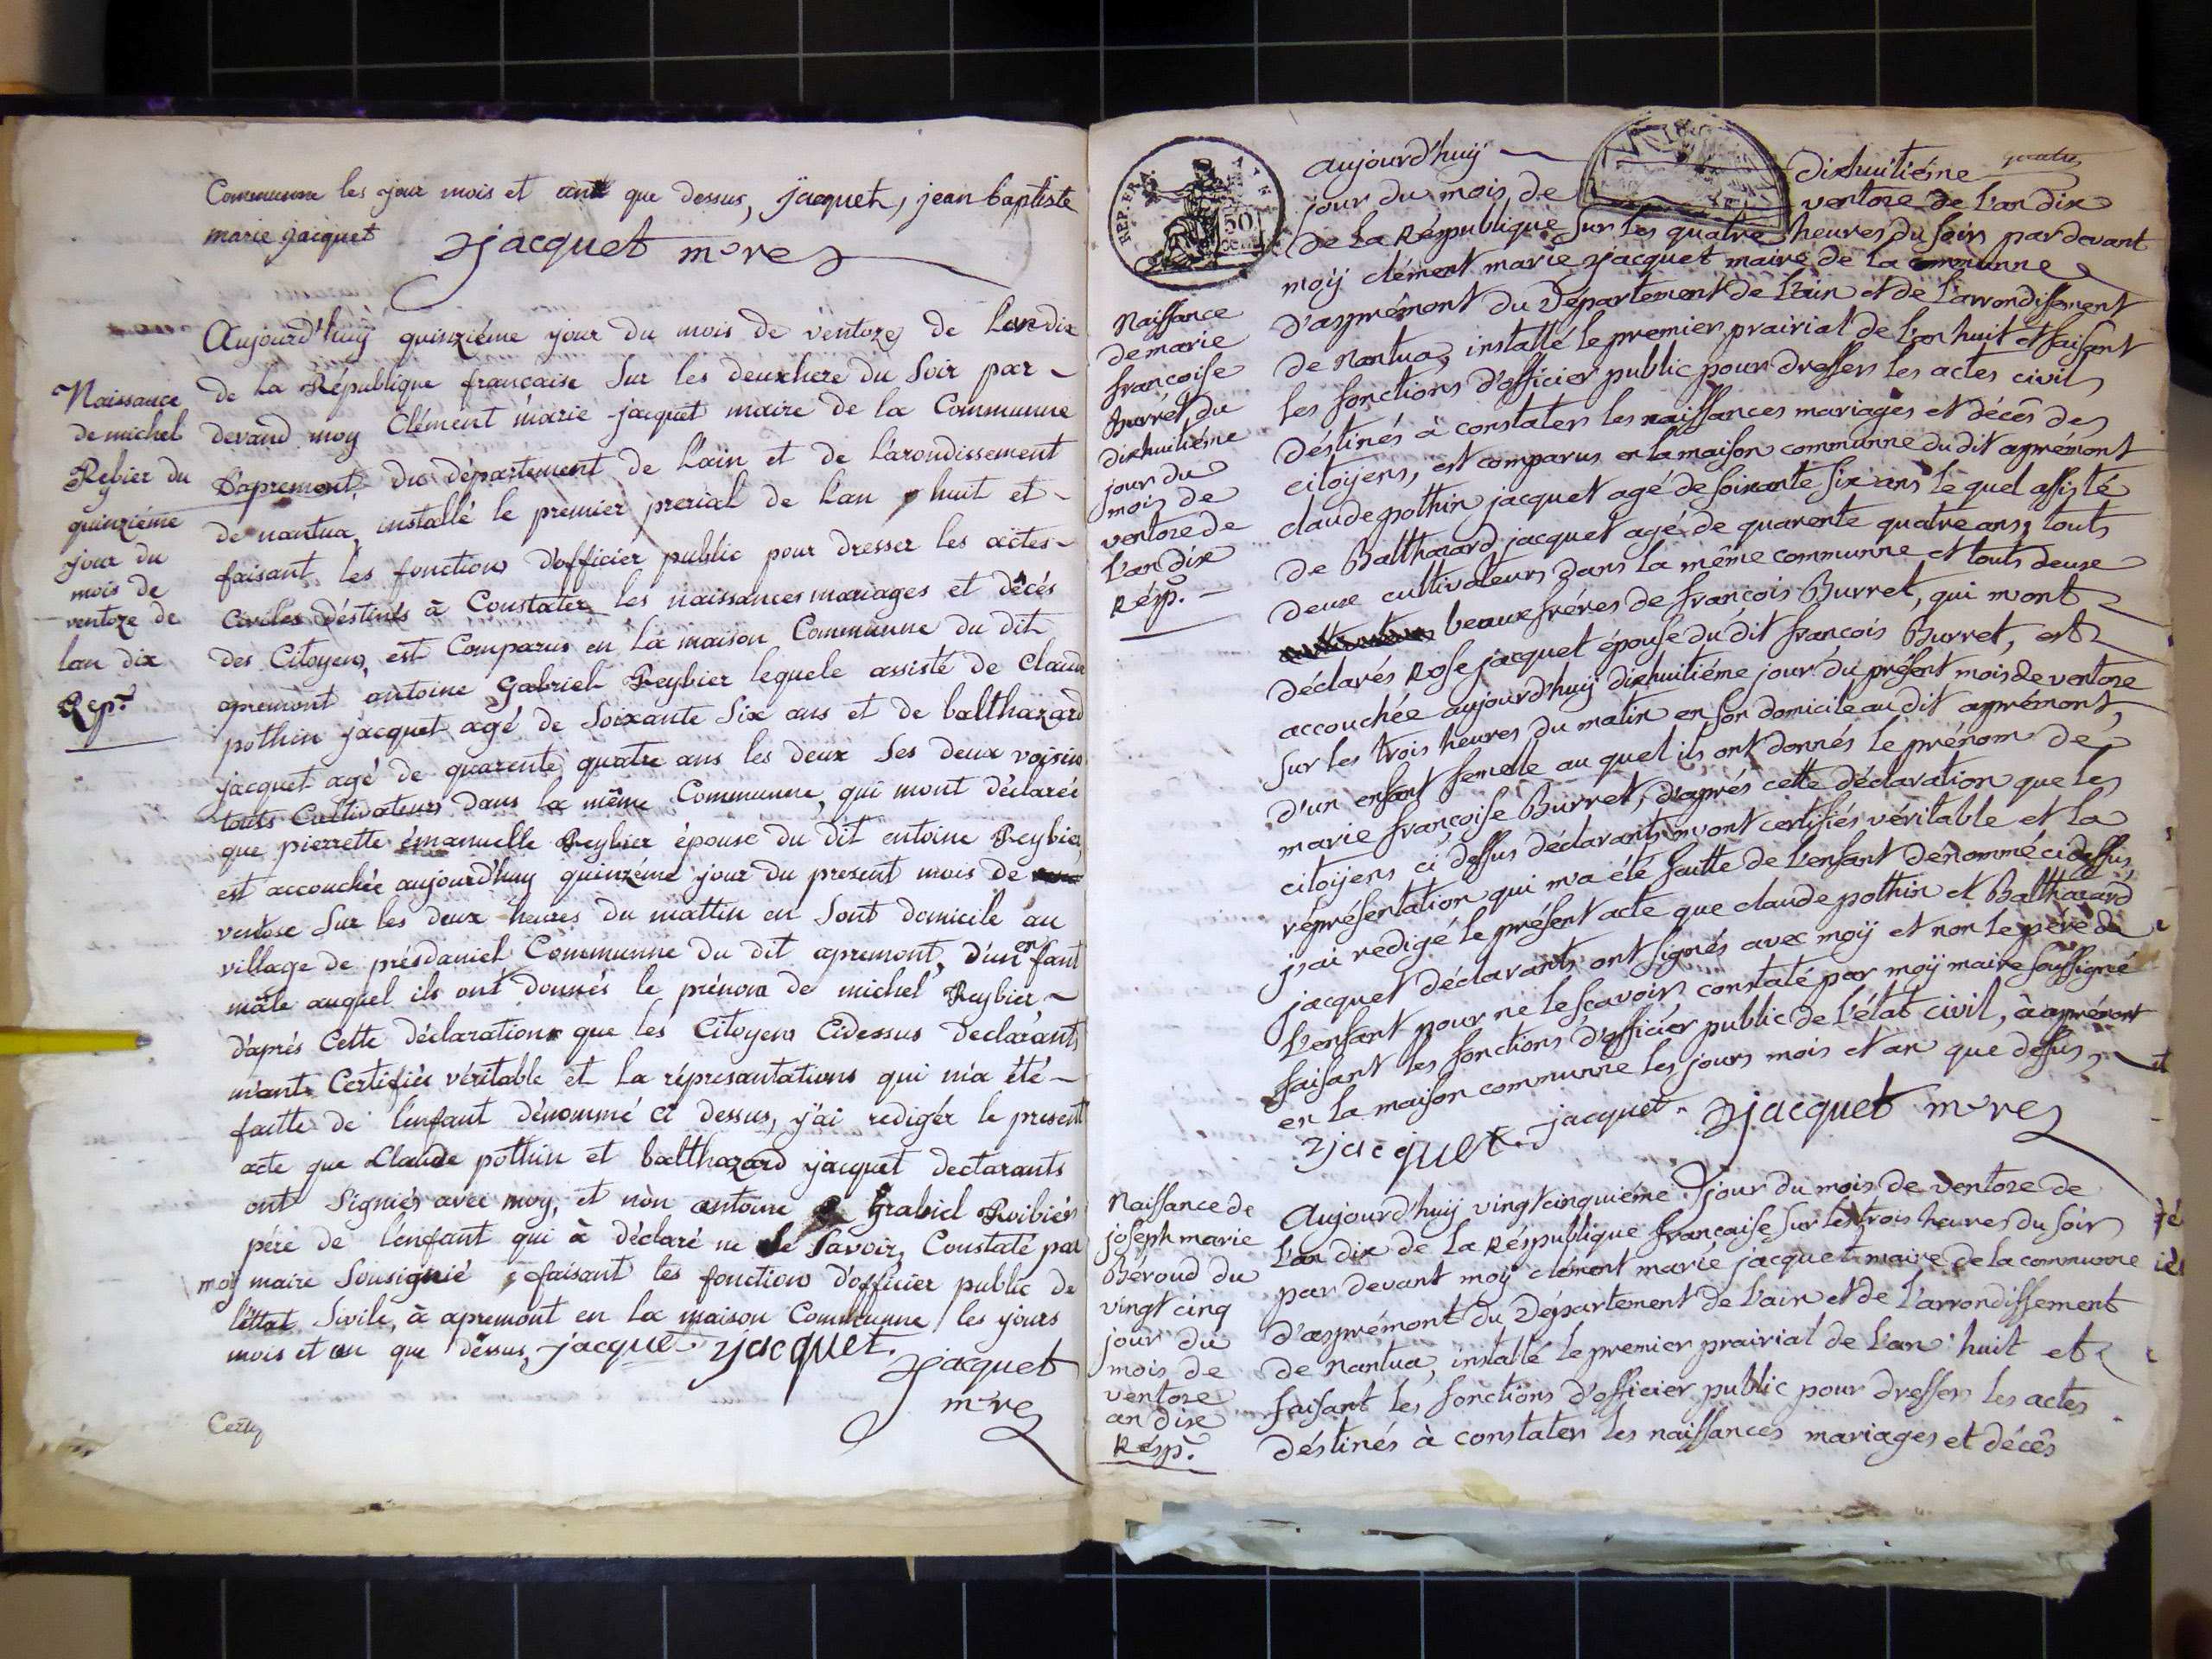 Communne les jour mois et ant que dessus, jacquet, jean baptiste
marie jacquet
jacquet mre
Naissance
de michel
Rebier du
quinziéme
jour du
mois de
ventoze de
lan dix
Rep.
Aujourd'huÿ quinziéme jour du mois de ventoze de lan dix
de la République francaise sur les deux here du soir par
devand moy Clément marie jacquet maire de la Communne
D'apremont, du département de l'ain et de l'arondissement
de nantua, installé le premier prerial de lan huit et
faisant les fonctions d'officier public pour dresser les actes
Civiles déstinés à Constater les naissances mariages et décés
des Citoyens, est Comparus en la maison Communne du dit
apremont antoine Gabriel Reybier lequele assisté de Claude
pothin jacquet agé de soixante six ans et de balthazard
jacquet agé de quarente quatre ans les deux ses deux voisins
touts Cultivateurs dans la même Communne, qui mont déclarés
que pierrette émanuelle Reybier épouse du dit entoine Reybier,
est accouchée aujourd'huy quinzéme jour du present mois de
ventose sur les deux heures du mattin en sont domicile au
village de présdaniel Communne du dit apremont, d'un enfant
mâle auquel ils ont donnés le prénom de michel Reybier
d'aprés Cette déclarations que les Citoyens Cidessus declarants
m'ants Certifiés véritable et la répresantations qui m'a été
faitte de l'enfant dénommé ci dessus, j'ai rediger le present
acte que Claude pothin et balthazard jacquet declarants
ont signiés avec moy, et nòn antoine Grabiel Roibiér
pére de l'enfant qui à déclaré ne le savoir, Constaté par
moy maire sousignié faisant les fonctions d'officier public de
l'éttat Sivile, à apremont en la maison Communne les jours
mois et an que déssus, jacque. jacquet.
jacquet
mre
REP. FRA.
50
aujourd'huÿ dixhuitiéme quatre
jour du mois de ventose de l'an dix
de la République sur les quatre heures du soir par devant
moÿ clément marie jacquet maire de la communne
d'asprémont du Département de l'ain et de l'arrondissement
de nantua, installé le premier prairial de l'an huit et faisant
les fonctions d'officier public pour dresser les actes civils
déstinés à constater les naissances mariages et décês des
citoÿens, est comparus en la maison communne du dit aprémont
claude pothin jacquet agé de soixante six ans le quel assisté
de Balthazard jacquet agé de quarente quatre ans, touts
deux cultivateurs dans la même communne et touts deux
beaux fréres de françois Burret, qui m'ont
déclarés Rose jacquet épouse du dit françois Burret, est
accouchée aujourd'huÿ dixhuitiéme jour du présent mois de ventose
sur les trois heures du matin en son domicile au dit aprémont,
d'un enfant femelle au quel ils ont donnés le prénom de
marie françoise Burret, d'aprés cette déclaration que les
citoÿens ci dessus déclarants m'ont certifiés véritable et la
réprésentation qui m'a été faitte de l'enfant dénommé ci dessus,
j'ai redigé le présent acte que claude pothin et Balthazard
jacquet déclarants ont signés avec moÿ et non le pére de
l'enfant pour ne le sçavoir, constaté par moÿ maire soussigné
faisant les fonctions d'officier public de l'état civil, à aprémont
en la maison communne les jours mois et an que dessus,
jacquet. jacquet. jacquet mre
Naissance
de marie
françoise
Burret, du
dixhuitiéme
jour du
mois de
ventose de
l'an dix
Résp.
Naissance de
joseph marie
Béroud du
vingt cinq
jour du
mois de
ventose
an dix
Résp.
Aujourd'huÿ vingt cinquiéme jour du mois de ventose de
l'an dix de la République francaise sur les trois heures du soir
par devant moÿ clément marie jacquet maire de la communne
d'asprémont du Département de l'ain et de l'arrondissement
de nantua, installé le premier prairial de l'an huit et
faisant les fonctions d'officier public pour dresser les actes
déstinés à constater les naissances mariages et décês